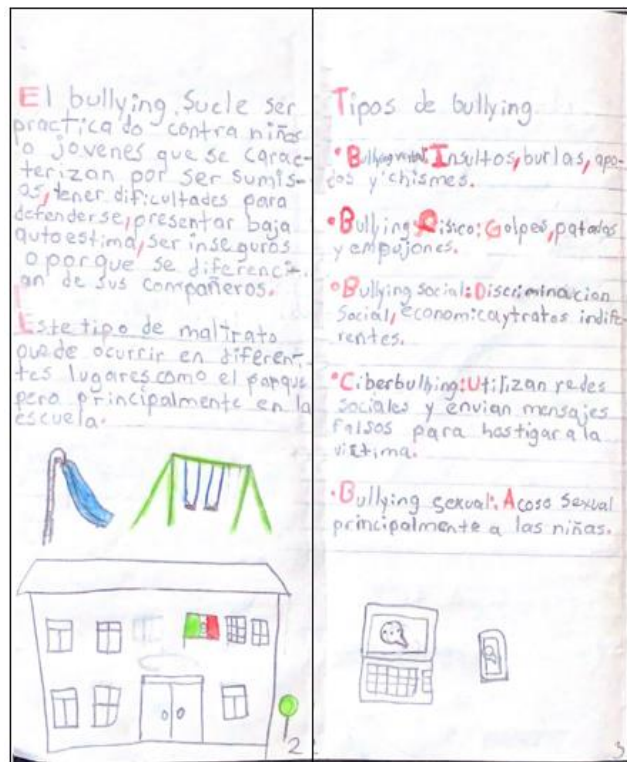 El bullying, suele ser
practicado contra niños
o jovenes que se carac-
terizan por ser sumis-
as, tener dificultades para
defenderse, presentar baja
autoestima, ser inseguros
o porque se diferenci-
an de sus compañeros.
Este tipo de maltrato
puede ocurrir en diferen-
tes lugares como el parque
pero principalmente en la
escuela.
2
Tipos de bullying
• Bullying verbal: Insultos, burlas, apo-
dos y chismes.
• Bullying Fisico: Golpes, patadas
y empujones.
• Bullying social: Discriminacion
social, economica y tratos indife-
rentes.
• Ciberbullying: Utilizan redes
sociales y envian mensajes
falsos para hostigar a la
victima.
• Bullying sexual: Acoso sexual
principalmente a las niñas.
3